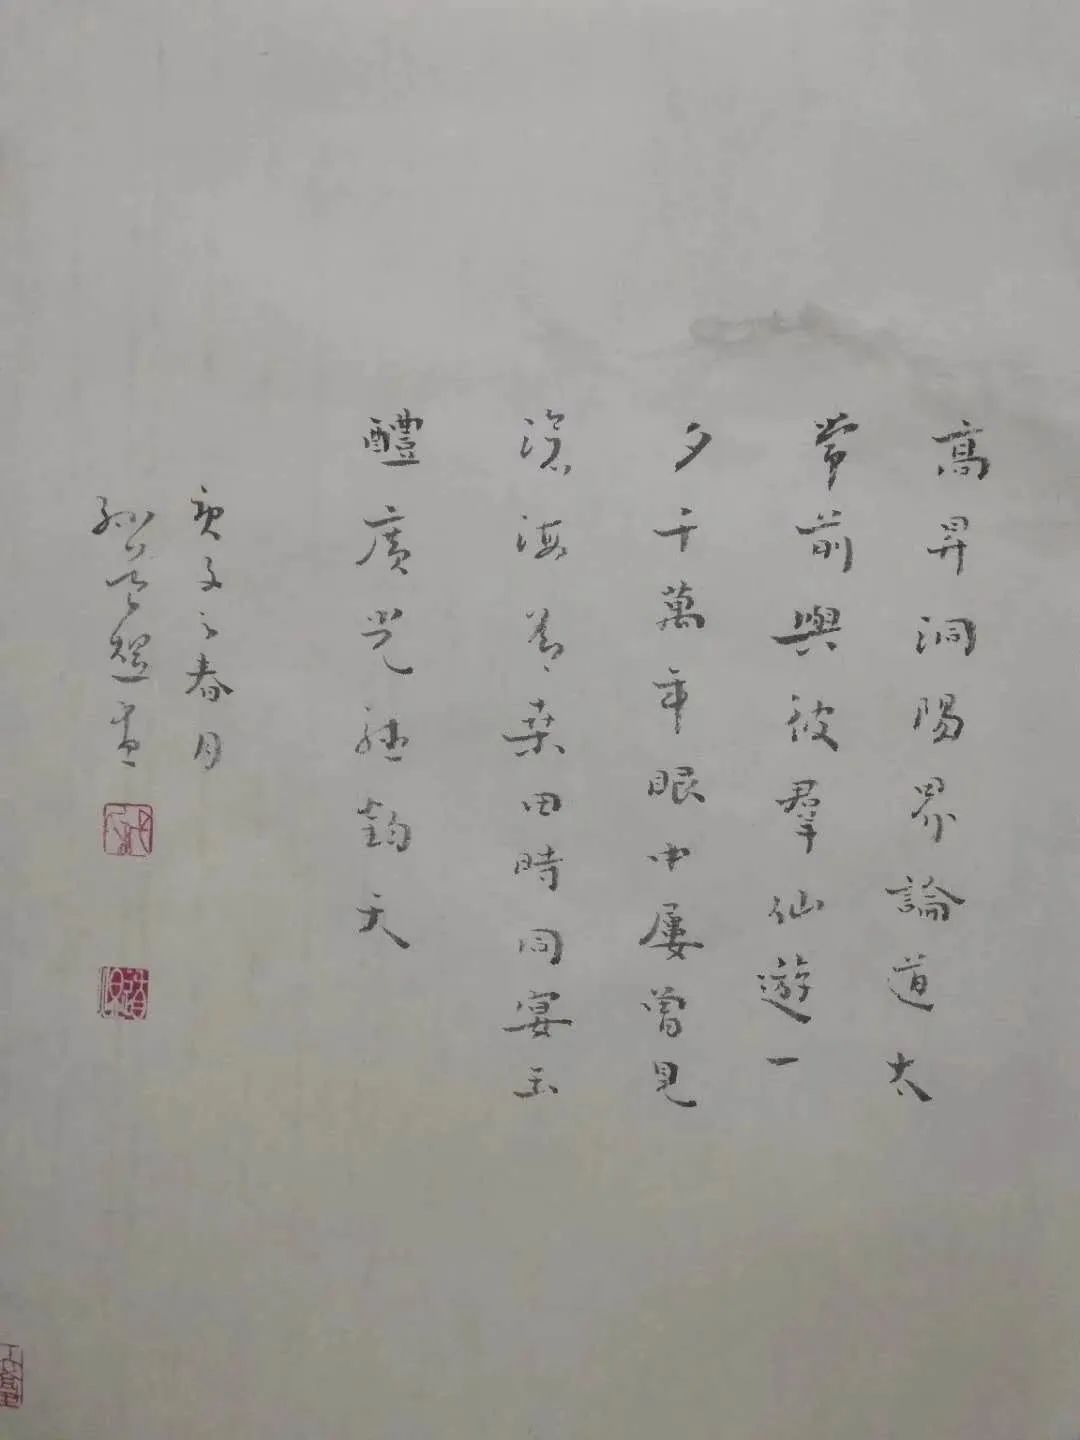 高昇洞陽界論道太
常前與彼羣仙遊一
夕千萬年眼中屢曾見
滄海為桑田時同宴玉
醴廣光聽鈞天
庚子之春月
孫